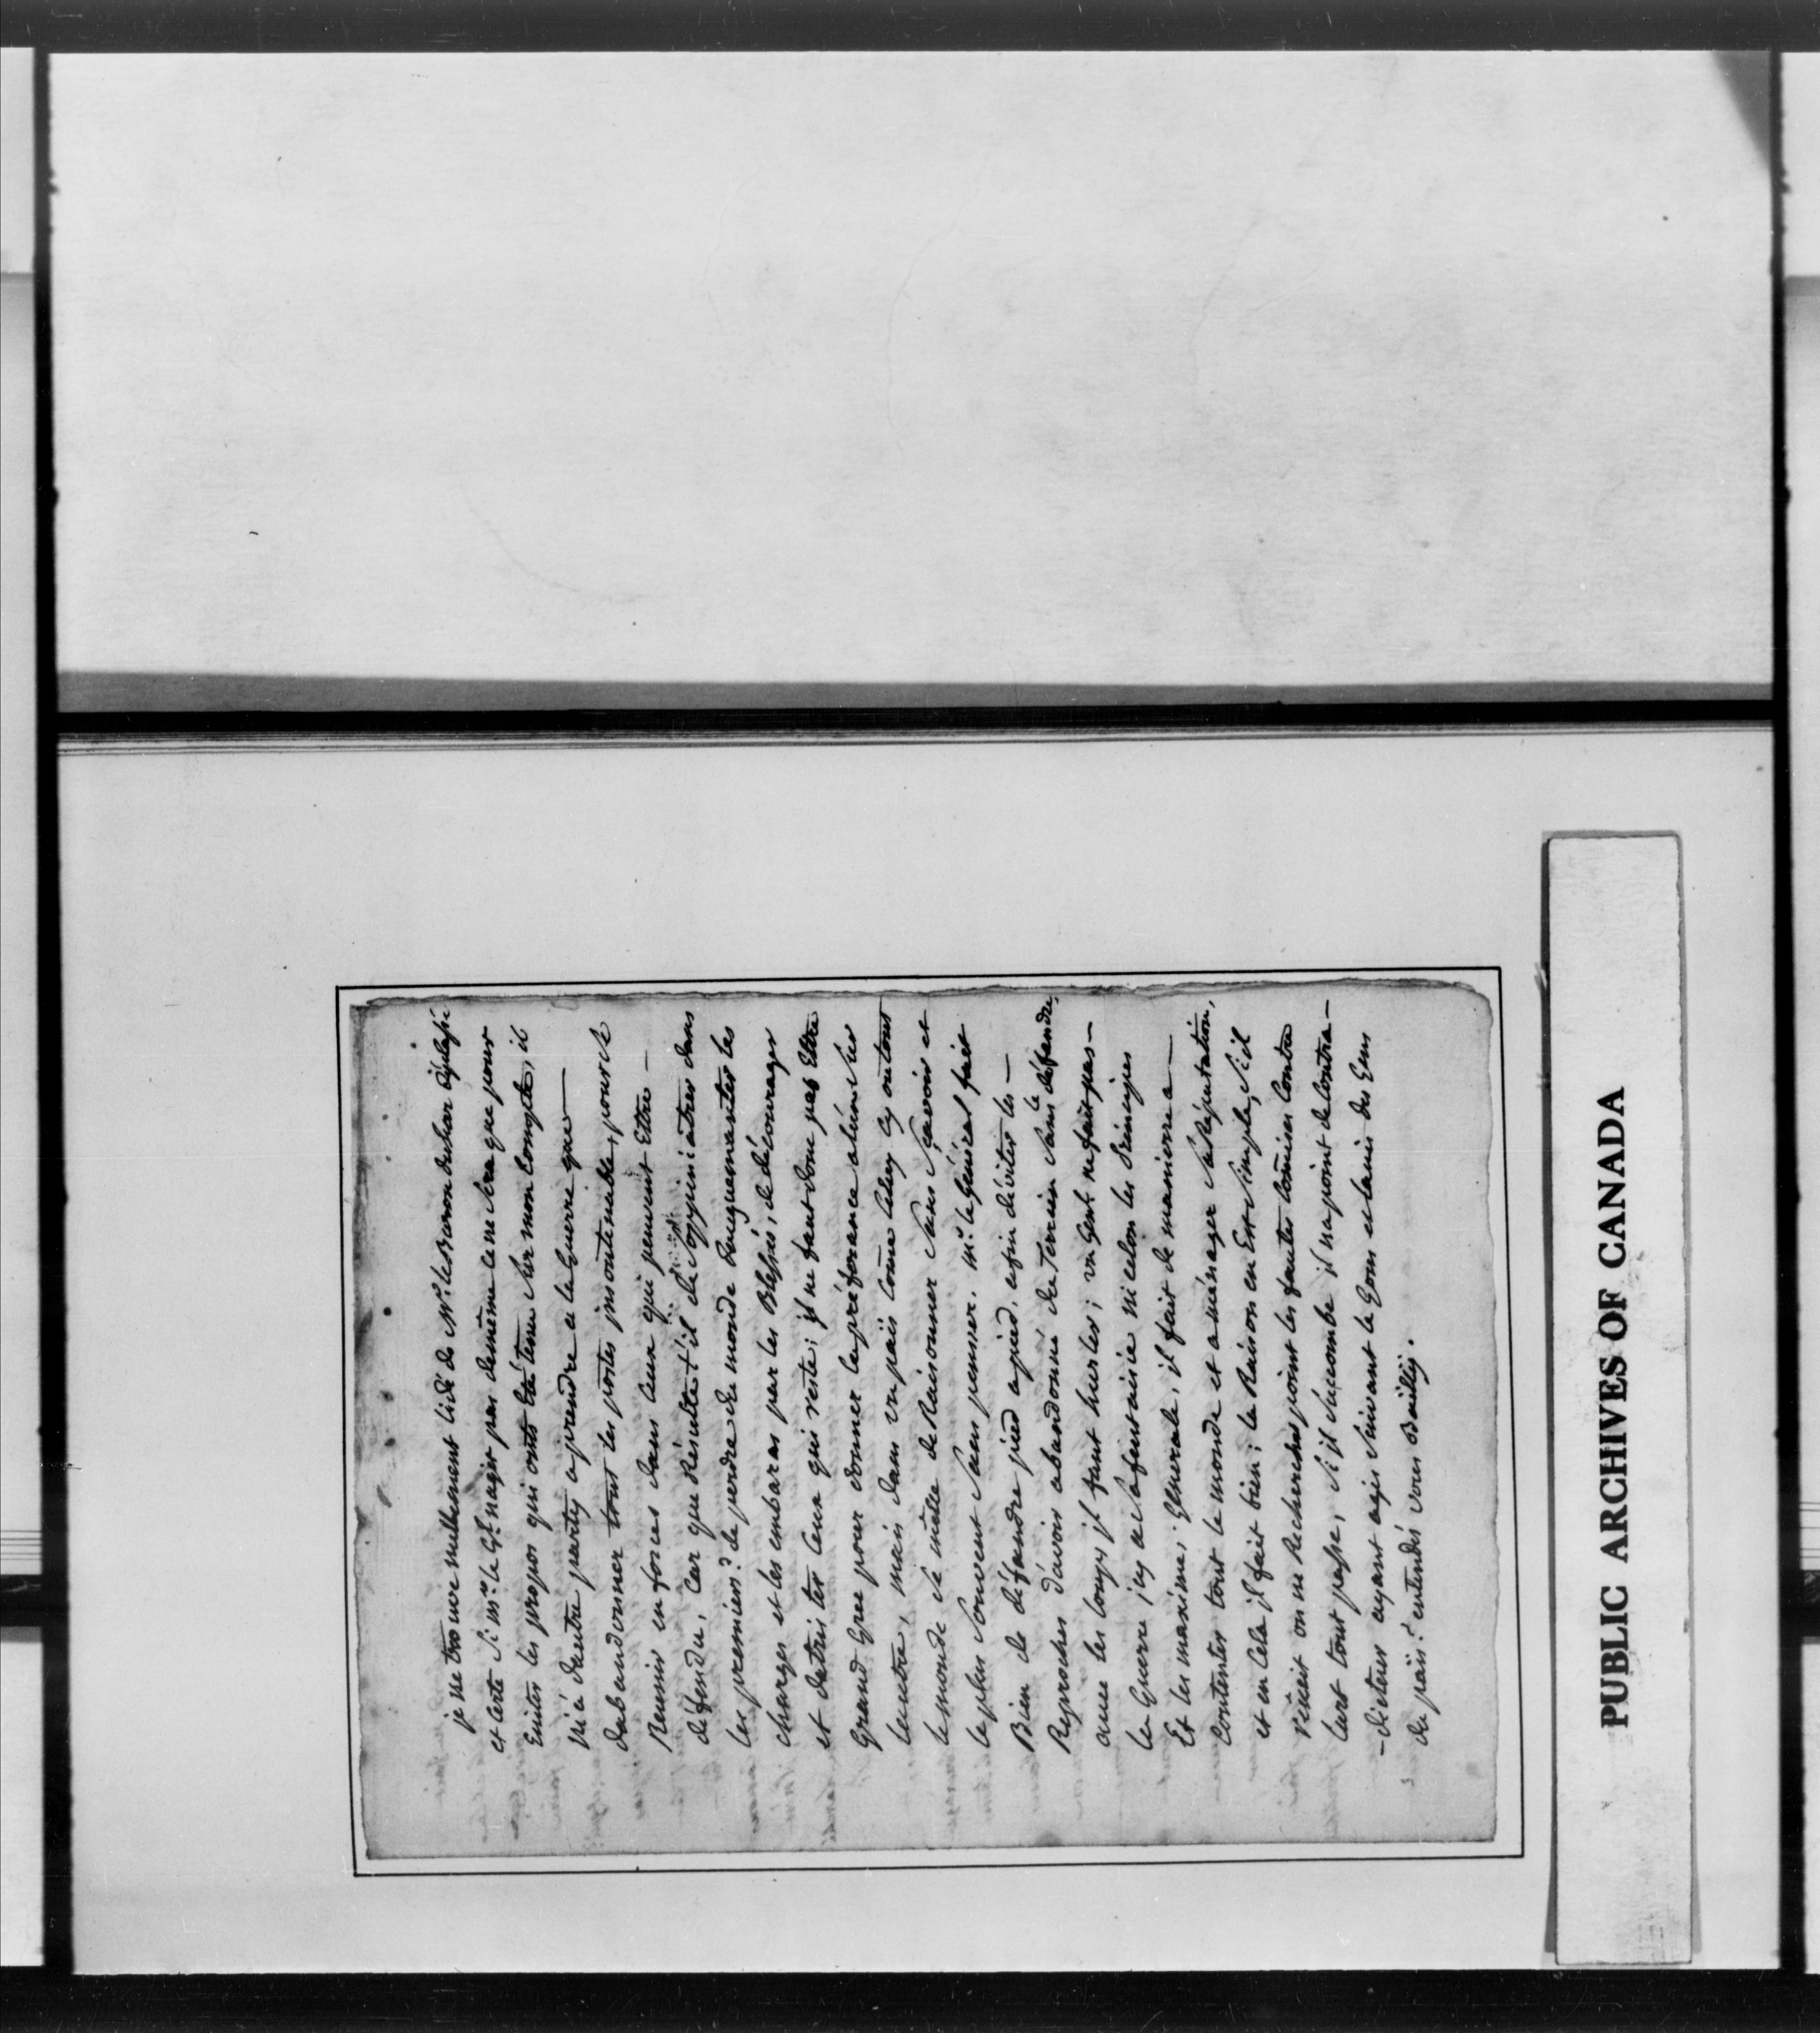 je ne trouve nullement lidé de Mr. le Baron duhar déplassé
et certe Si mr. le Gl. nagit pas demême ce ne Sera que pour
Eviter les propos qui onts été tenu Sur mon Compte, il
ni a dautre party a prendre a la Guerre que
dabandonner tout les postes insoutenables, pour se
Reunir en forces dans ceux qui peuvent Etre
défendu, Car que Résulte-t'il de Soppiniatrer dans
les premiers? de perdre du monde daugmenter les
charges et les embaras par les Blessés, de décourager
et datrister Ceux qui reste; il ne faut donc pas Etre
Grand Grec pour donner la préférance a lun Sur
lautre, mais dans un païs Come Celuy Cy ou tout
le monde Se mêtte de Raisonner Sans Sçavoir et
le plus Souvent Sans penser. mr. le Général fait
Bien de défandre pied a pied, afin déviter les
Reproches d'avoir abandonné du Terrien Sans le défandre,
avec les Loups il faut hurler; un Gent. ne fait pas
la Guerre icy a Sa fentaisie ni celon les Principes
Et les maxime; Générale, il fait de manierre a
Contenter tout le monde et a ménager Sa Réputation,
et en Cela il fait bien; la Raison en Est Simple, S'il
réusit on ne Recherches point les fautes Comises Contre
lart tout passe, Si il Sucombe il na point de Contra-
-dicteur ayant agis Suivant le Gous et lavis des Gens
du païs! entendés vous Baïlly.
PUBLIC ARCHIVES OF CANADA